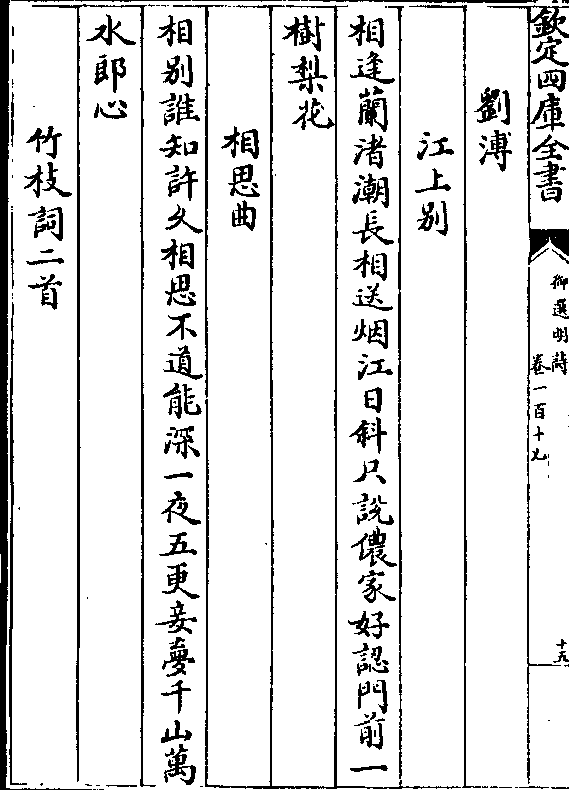 欽定四庫全書
御選明詩
卷一百十九
十九
劉溥
江上别
相逢蘭渚潮長相送烟江日斜只說儂家好認門前一
樹梨花
相思曲
相别誰知許久相思不道能深一夜五更妾夢千山萬
水郎心
竹枝詞二首